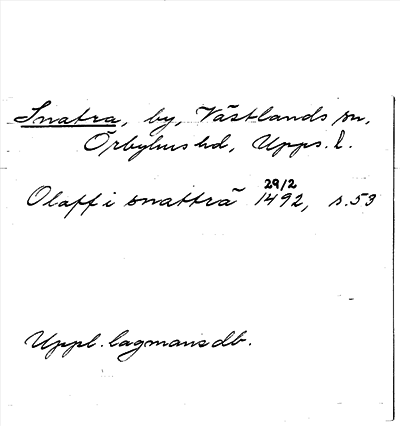 Snatra, by, Västlands sn,
Örbyhus hd, Upps. l.
29/2
Olaff i snatträ 1492, s. 53
Uppl. lagmansdb.